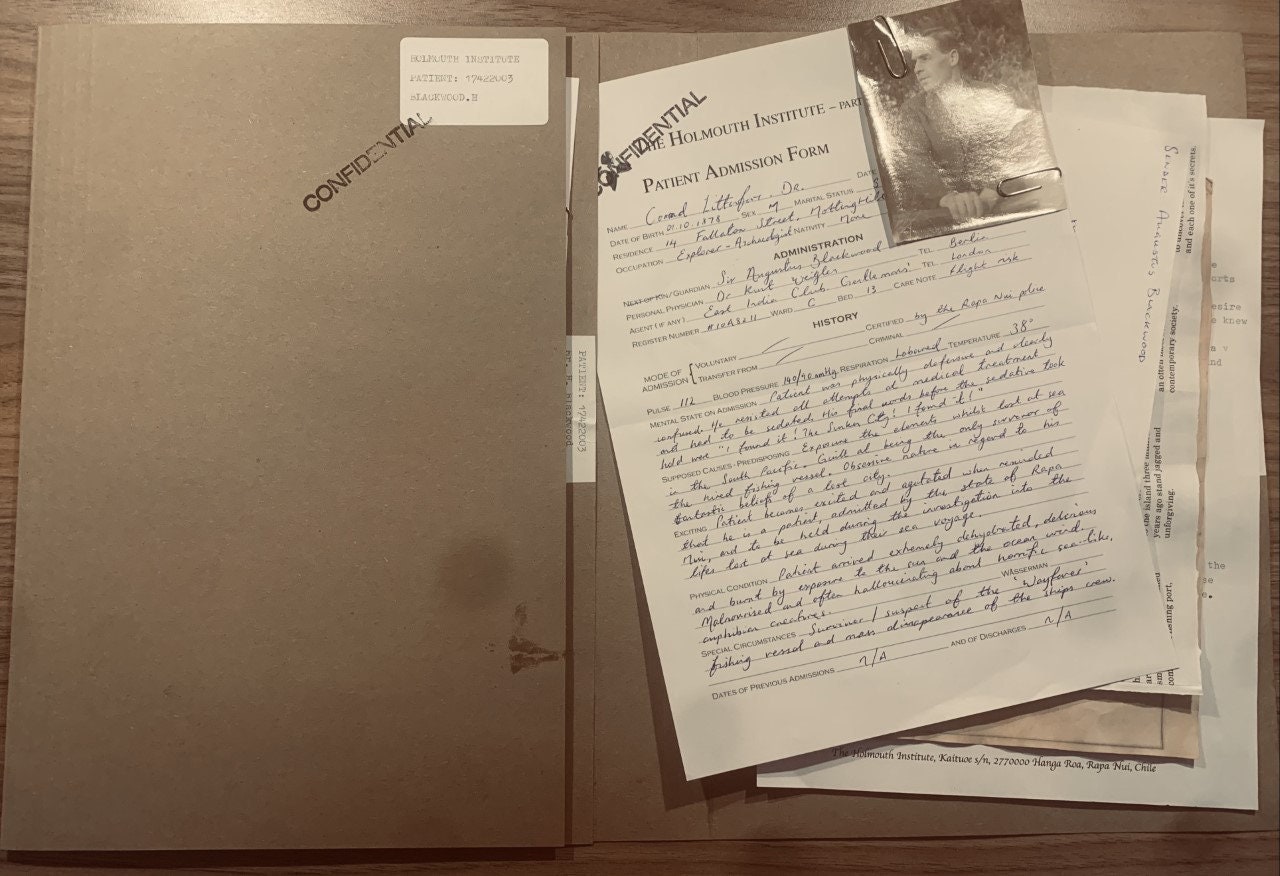 HOLMOUTH INSTITUTE
PATIENT: 17422003
BLACKWOOD.H
CONFIDENTIAL
PATIENT: 17422003
Mr. H. Blackwood
CONFIDENTIAL
THE HOLMOUTH INSTITUTE – PART
PATIENT ADMISSION FORM
NAME Conrad Dr. DATE
DATE OF BIRTH 01.10.1878 SEX M MARITAL STATUS
RESIDENCE 14 Fallalon Street,
OCCUPATION Explorer - Archeologist NATIVITY None
ADMINISTRATION
NEXT OF KIN/GUARDIAN Sir Augustus Blackwood TEL.
PERSONAL PHYSICIAN Dr Kurt Weigler TEL. Berlin
AGENT (IF ANY) East India Club, Gentlemans' TEL. London
REGISTER NUMBER WARD C BED 13 CARE NOTE flight risk
HISTORY
MODE OF ADMISSION { VOLUNTARY CERTIFIED by the Rapa Nui police
TRANSFER FROM CRIMINAL
PULSE 112 BLOOD PRESSURE 140/90 mmHg RESPIRATION Laboured TEMPERATURE 38°
MENTAL STATE ON ADMISSION Patient was physically defensive and clearly
confused. He resisted all attempts at medical treatment
and had to be sedated. His final words before the sedative took
hold were "I found it! The Sunken City! I found it!"
SUPPOSED CAUSES - PREDISPOSING Exposure the elements whilst lost at sea
in the South Pacific. Guilt at being the only survivor of
the hired fishing vessel. Obsessive nature in regard to his
fantastic beliefs of a lost city.
EXCITING Patient becomes excited and agitated when reminded
that he is a patient, admitted by the state of Rapa
Nui, and to be held during the investigation into the
lifes lost at sea during their sea voyage.
PHYSICAL CONDITION Patient arrived extremely dehydrated, delirious
and burnt by exposure to the sun and the ocean wind.
Malnourised and often hallucinating about horrific sea-like,
amphibian creatures. WASSERMAN
SPECIAL CIRCUMSTANCES Survivor / suspect of the 'Wayfarer'
fishing vessel and mass disappearance of the ships crew.
DATES OF PREVIOUS ADMISSIONS n/A AND OF DISCHARGES n/A
SENDER AUGUSTUS BLACKWOOD
and each one of it's secrets.
an often
contemporary society.
the island three
years ago stand jagged and
unforgiving.
ming port,
esire
knew
the
The Holmouth Institute, Kaituoe s/n, 2770000 Hanga Roa, Rapa Nui, Chile